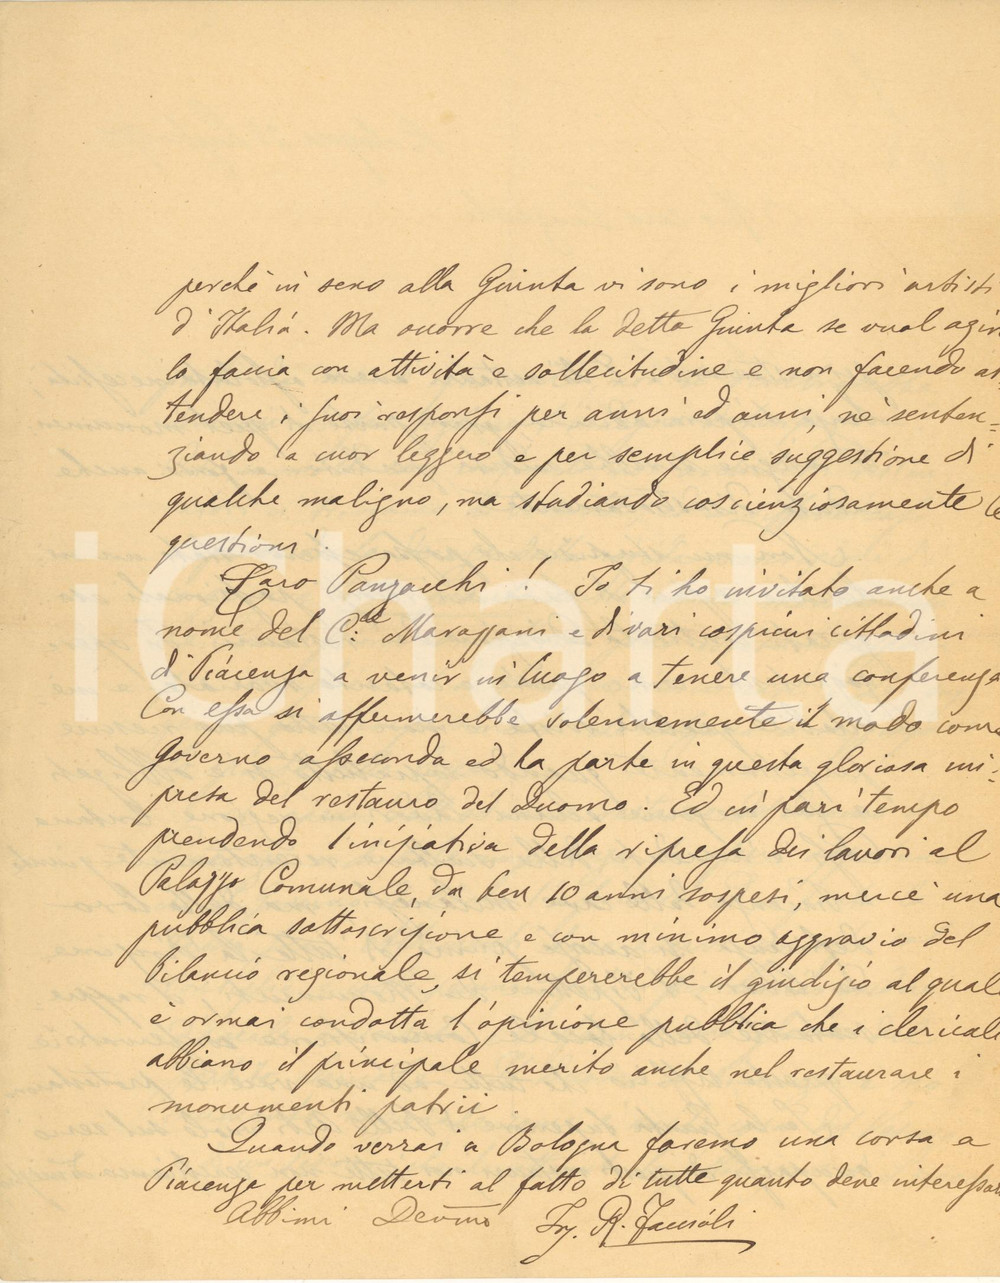 perchè in seno alla Giunta vi sono i migliori artisti
d'Italia. Ma occorre che la detta Giunta se vual agir
lo faccia con attività e sollecitudine e non facendo as
tendere i suoi responsi per anni ed anni, nè senten=
ziando a cuor leggero e per semplice suggestione di
qualche maligno, ma studiando coscienziosamente le
questioni.
Caro Panzacchi! Io ti ho invitato anche a
nome del C.te Marazzani e di vari cospicui cittadini
di Piacenza a venir in luogo a tenere una conferenza
Con essa si affermerebbe solennemente il modo come
Governo asseconda ed ha parte in questa gloriosa im=
presa del restauro del Duomo. Ed in pari tempo
prendendo l'iniziativa della ripresa dei lavori al
Palazzo Comunale, da ben 10 anni sospesi, mercè una
pubblica sottoscrizione e con minimo aggravio del
bilancio regionale, si tempererebbe il giudizio al qual
è ormai condotta l'opinione pubblica che i clericali
abbiano il principale merito anche nel restaurare i
monumenti patrii.
Quando verrai a Bologna faremo una corsa a
Piacenza per metterti al fatto di tutte quanto deve interessar
Abbimi Devmo Ing. R. Faccioli
iCharta